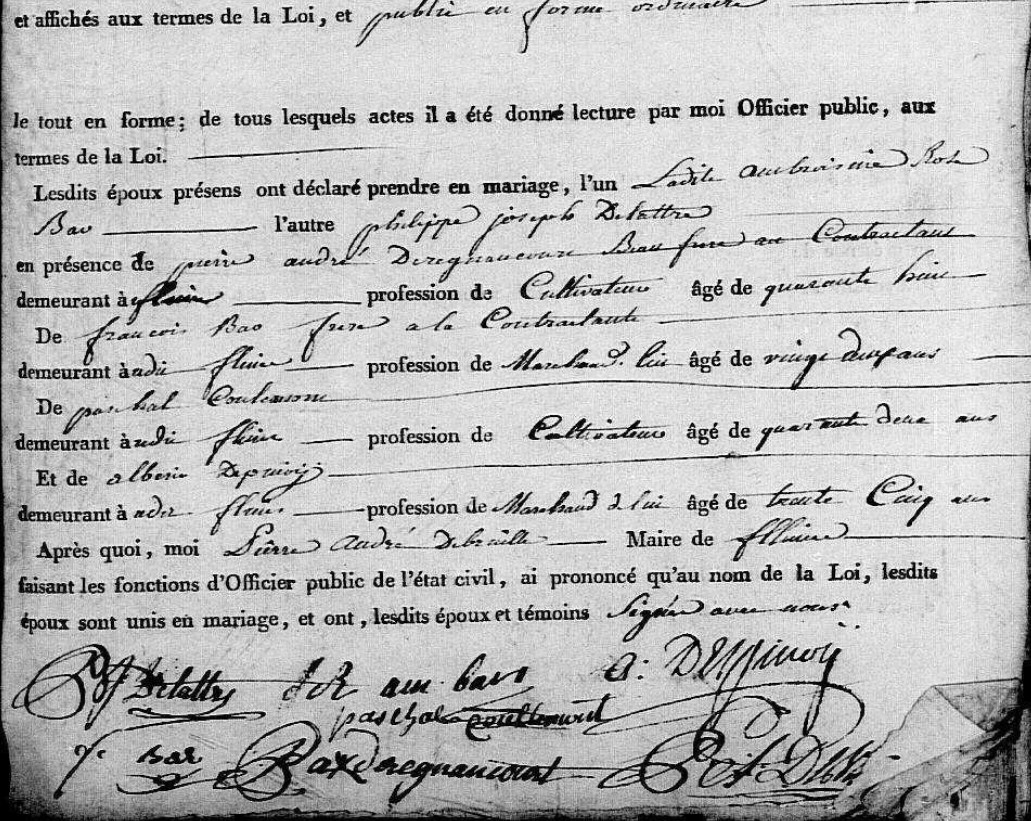 et affichés aux termes de la Loi, et publié en forme ordinaire
le tout en forme; de tous lesquels actes il a été donné lecture par moi Officier public, aux
termes de la Loi.
Lesdits époux présens ont déclaré prendre en mariage, l'un Ladite ambroisine Rose
Bar l'autre philippe joseph Delattre
en présence de pierre andré Deregnaucourt Beau frere au Contractant
demeurant à fline profession de Cultivateur âgé de quarante huit
De francois Bar frere a la Contractante
demeurant à udit fline profession de Marchand. lin âgé de vingt ans
De paschal
demeurant à udit fline profession de Cultivateur âgé de quarante deux ans
Et de albert Despinoij
demeurant à fline profession de Marchand d lin âgé de trente Cinq ans
Après quoi, moi Pierre André Maire de
faisant les fonctions d'Officier public de l'état civil, ai prononcé qu'au nom de la Loi, lesdits
époux sont unis en mariage, et ont, lesdits époux et témoins Signés avec nous
Delattre am bar a: Despinoij
paschal
bar Deregnaucourt